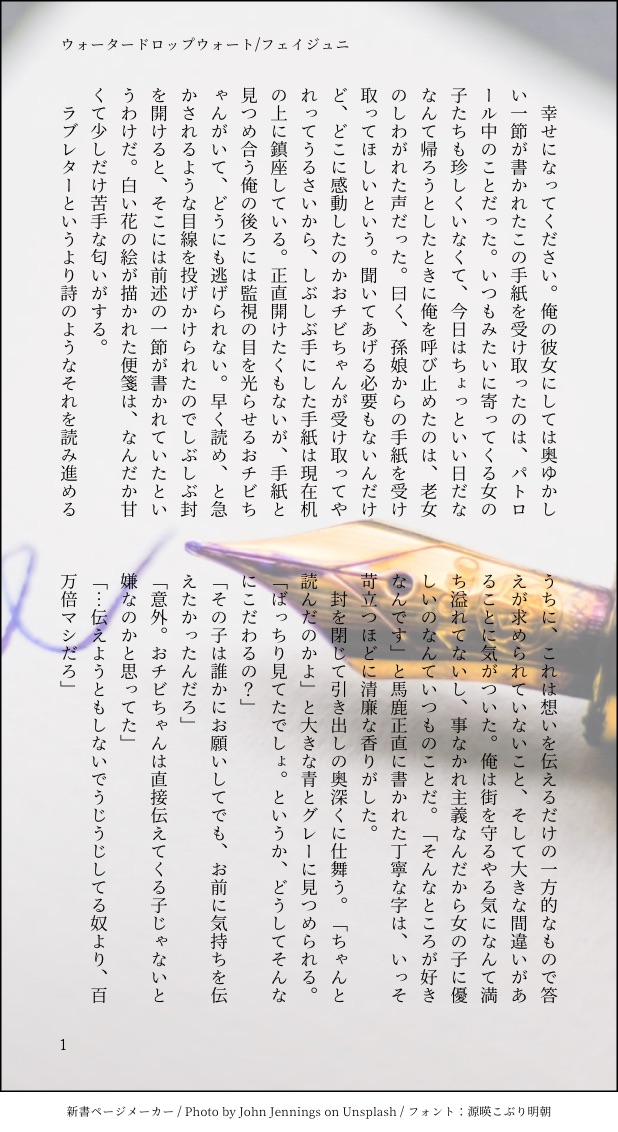 ウォータードロップウォート/フェイジュニ
　幸せになってください。俺の彼女にしては奥ゆかし
い一節が書かれたこの手紙を受け取ったのは、パトロ
ール中のことだった。いつもみたいに寄ってくる女の
子たちも珍しくいなくて、今日はちょっといい日だな
なんて帰ろうとしたときに俺を呼び止めたのは、老女
のしわがれた声だった。曰く、孫娘からの手紙を受け
取ってほしいという。聞いてあげる必要もないんだけ
ど、どこに感動したのかおチビちゃんが受け取ってや
れってうるさいから、しぶしぶ手にした手紙は現在机
の上に鎮座している。正直開けたくもないが、手紙と
見つめ合う俺の後ろには監視の目を光らせるおチビち
ゃんがいて、どうにも逃げられない。早く読め、と急
かされるような目線を投げかけられたのでしぶしぶ封
を開けると、そこには前述の一節が書かれていたとい
うわけだ。白い花の絵が描かれた便箋は、なんだか甘
くて少しだけ苦手な匂いがする。
　ラブレターというより詩のようなそれを読み進める
うちに、これは想いを伝えるだけの一方的なもので答
えが求められていないこと、そして大きな間違いがあ
ることに気がついた。俺は街を守るやる気になんて満
ち溢れてないし、事なかれ主義なんだから女の子に優
しいのなんていつものことだ。「そんなところが好き
なんです」と馬鹿正直に書かれた丁寧な字は、いっそ
苛立つほどに清廉な香りがした。
　封を閉じて引き出しの奥深くに仕舞う。「ちゃんと
読んだのかよ」と大きな青とグレーに見つめられる。
「ばっちり見てたでしょ。というか、どうしてそんな
にこだわるの？」
「その子は誰かにお願いしてでも、お前に気持ちを伝
えたかったんだろ」
「意外。おチビちゃんは直接伝えてくる子じゃないと
嫌なのかと思ってた」
「…伝えようともしないでうじうじしてる奴より、百
万倍マシだろ」
1
新書ページメーカー / Photo by John Jennings on Unsplash / フォント：源暎こぶり明朝